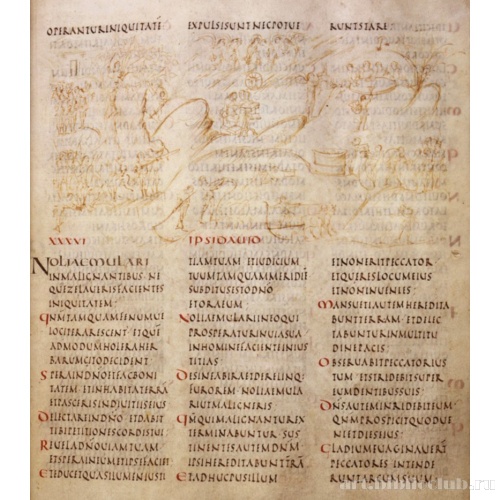 OPERANTURINIQUITATĒ
EXPULSISUNTNECPOTUE
RUNTSTARE
XXXVI
IPSIDAUID
NOLIAEMULARI
INMALIGNANTIBUS NE
QUEZELAUERISFACIENTES
INIQUITATEM
QNMTAMQUAMFENUMUE
LOCITERARESCENT ETQUĒ
ADMODUMHOLERAHER
BARUMCITODECIDENT
SPERAINDNOETFACBONI
TATEM ETINHABITATERRĀ
ETPASCERISINDIUITIISEIUS
DELECTAREINDNO ETDABIT
TIBIPETITIONESCORDISTUI
REUELADNOUIAMTUAM
ETSPERAINEUMETIPSEFACI
ETEDUCETQUASILUMENIUSTI
TIAMTUAM ETIUDICIUM
TUUMTAMQUAMMERIDIĒ
SUBDITUSESTODNO
ETORAEUM
NOLIAEMULARIINEOQUI
PROSPERATURINUIASUA
INHOMINEFACIENTEINIUS
TITIAS
DESINEABIRAETDERELINQ
FUROREM NOLIAEMULA
RIUTMALIGNERIS
QNMQUIMALIGNANTUREX
TERMINABUNTUR SUS
TINENTISAUTEMDNM
IPSIHEREDITABUNTTRĀ
ETADHUCPUSILLUM
ETNONERITPECCATOR
ETQUERISLOCUMEIUS
ETNONINUENIES
MANSUETIAUTEMHEREDITA
BUNTTERRAM ETDELEC
TABUNTURINMULTITU
DINEPACIS
OBSERUABITPECCATORIUS
TUM ETSTRIDEBITSUPER
EUMDENTIBUSSUIS
DNSAUTEMINRIDEBITEUM
QNMPROSPICITQUODUE
NIETDIESEIUS
GLADIUMEUAGINAUERT
PECCATORES INTENDE
RUNTARCUMSUUM